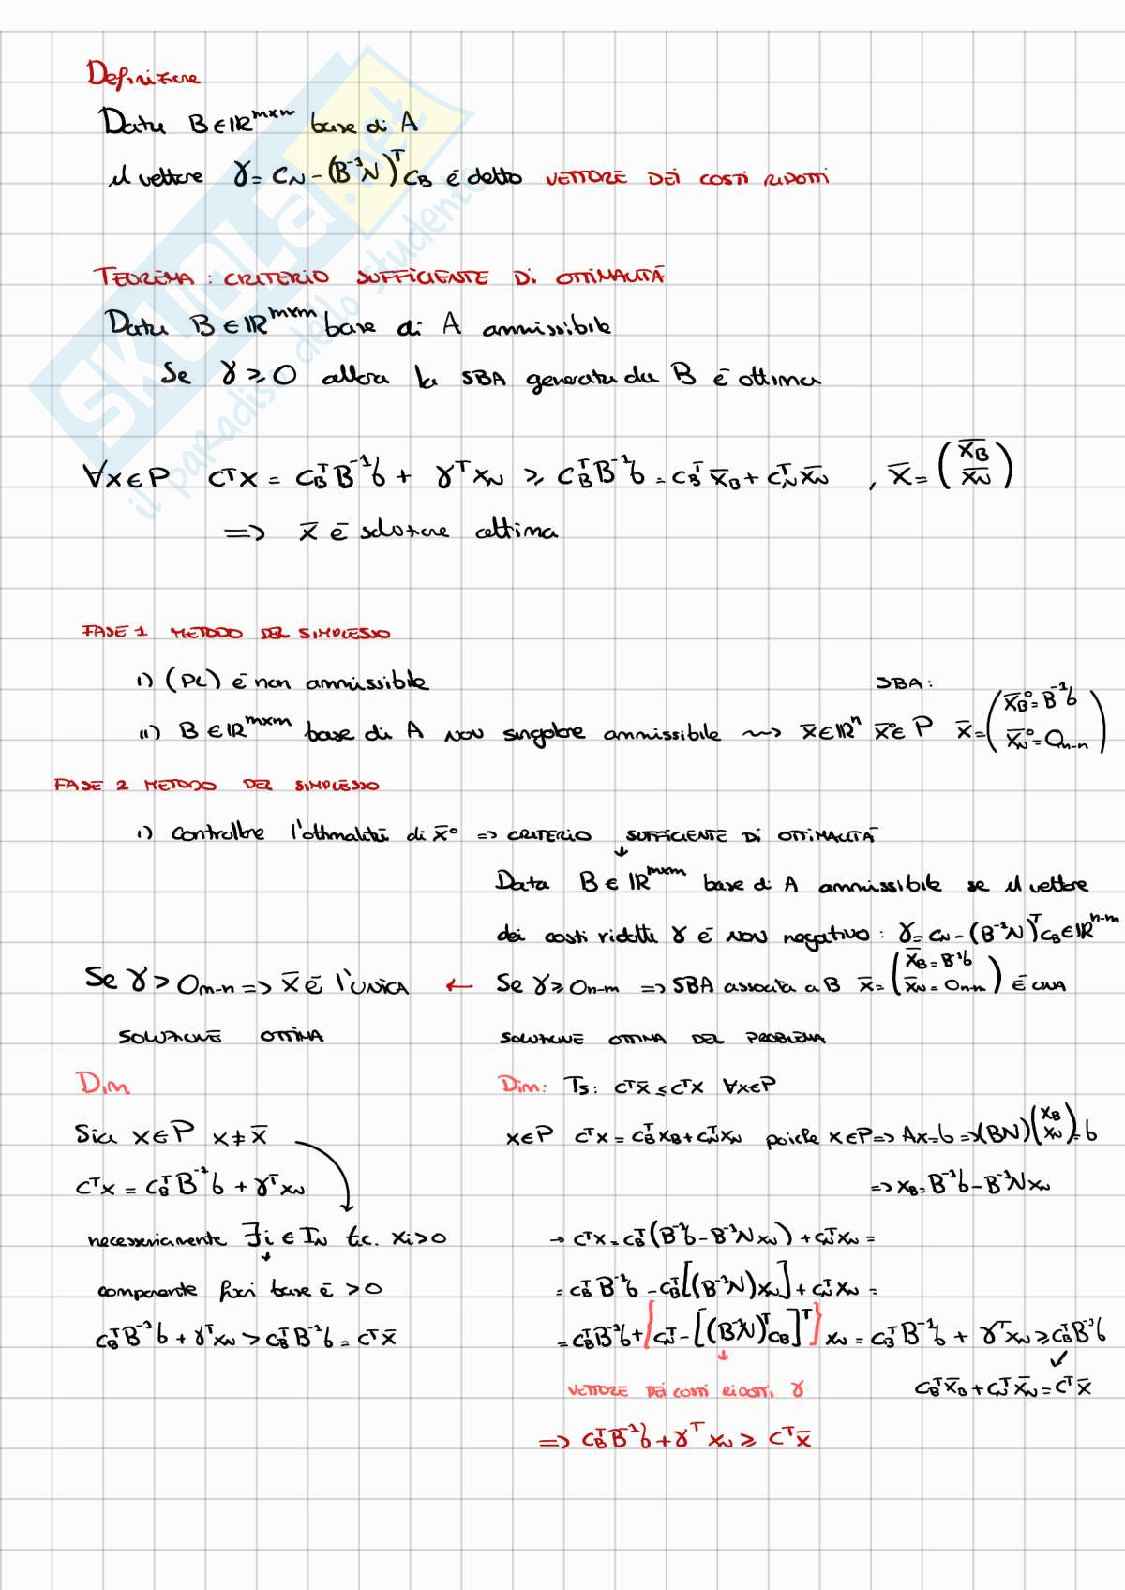 Definizione
Data B ∈ ℝ^{m×m} base di A
il vettore γ = C_N - (B⁻¹N)ᵀ C_B è detto VETTORE DEI COSTI RIDOTTI
TEOREMA: CRITERIO SUFFICIENTE DI OTTIMALITÀ
Data B ∈ ℝ^{m×m} base di A ammissibile
Se γ ≥ 0 allora la SBA generata da B è ottima
∀x∈P cᵀx = c_Bᵀ B⁻¹b + γᵀx_N ≥ c_Bᵀ B⁻¹b = c_Bᵀ x̄_B + c_Nᵀ x̄_N , x̄ = (x̄_B x̄_N)
=> x̄ è soluzione ottima
FASE 1 METODO DEL SIMPLESSO
i) (PL) è non ammissibile
SBA:
ii) B ∈ ℝ^{m×m} base di A NON singolare ammissibile ⇝ x̄∈ℝⁿ x̄°∈P x̄ = (x̄_B° = B⁻¹b x̄_N° = 0_{m-n})
FASE 2 METODO DEL SIMPLESSO
i) Controllare l'ottimalità di x̄° => CRITERIO SUFFICIENTE DI OTTIMALITÀ
↓
Data B ∈ ℝ^{m×m} base di A ammissibile se il vettore
dei costi ridotti γ è NON negativo: γ = c_N - (B⁻¹N)ᵀ c_B ∈ ℝ^{n-m}
Se γ > 0_{m-n} => x̄ è l'UNICA ← Se γ ≥ 0_{n-m} => SBA associata a B x̄ = (x̄_B = B⁻¹b x̄_N = 0_{n-m}) È UNA
SOLUZIONE OTTIMA SOLUZIONE OTTIMA DEL PROBLEMA
Dim
Sia x∈P x ≠ x̄
cᵀx = c_Bᵀ B⁻¹b + γᵀx_N
necessariamente ∃i ∈ I_N t.c. x_i > 0
↓
componente fuori base è > 0
c_Bᵀ B⁻¹b + γᵀx_N > c_Bᵀ B⁻¹b = cᵀx̄
Dim: Ts: cᵀx̄ ≤ cᵀx ∀x∈P
x∈P cᵀx = c_Bᵀ x_B + c_Nᵀ x_N poiché x∈P => Ax=b => (BN)(x_B x_N) = b
=> x_B = B⁻¹b - B⁻¹N x_N
→ cᵀx = c_Bᵀ (B⁻¹b - B⁻¹N x_N) + c_Nᵀ x_N =
= c_Bᵀ B⁻¹b - c_Bᵀ [(B⁻¹N) x_N] + c_Nᵀ x_N =
= c_Bᵀ B⁻¹b + {c_Nᵀ - [(B⁻¹N)ᵀ c_B]ᵀ} x_N = c_Bᵀ B⁻¹b + γᵀ x_N ≥ c_Bᵀ B⁻¹b
↓
VETTORE DEI COSTI RIDOTTI γ c_Bᵀ x̄_B + c_Nᵀ x̄_N = cᵀx̄
=> c_Bᵀ B⁻¹b + γᵀ x_N ≥ cᵀx̄
SKUOLA.net
il paradiso dello studente